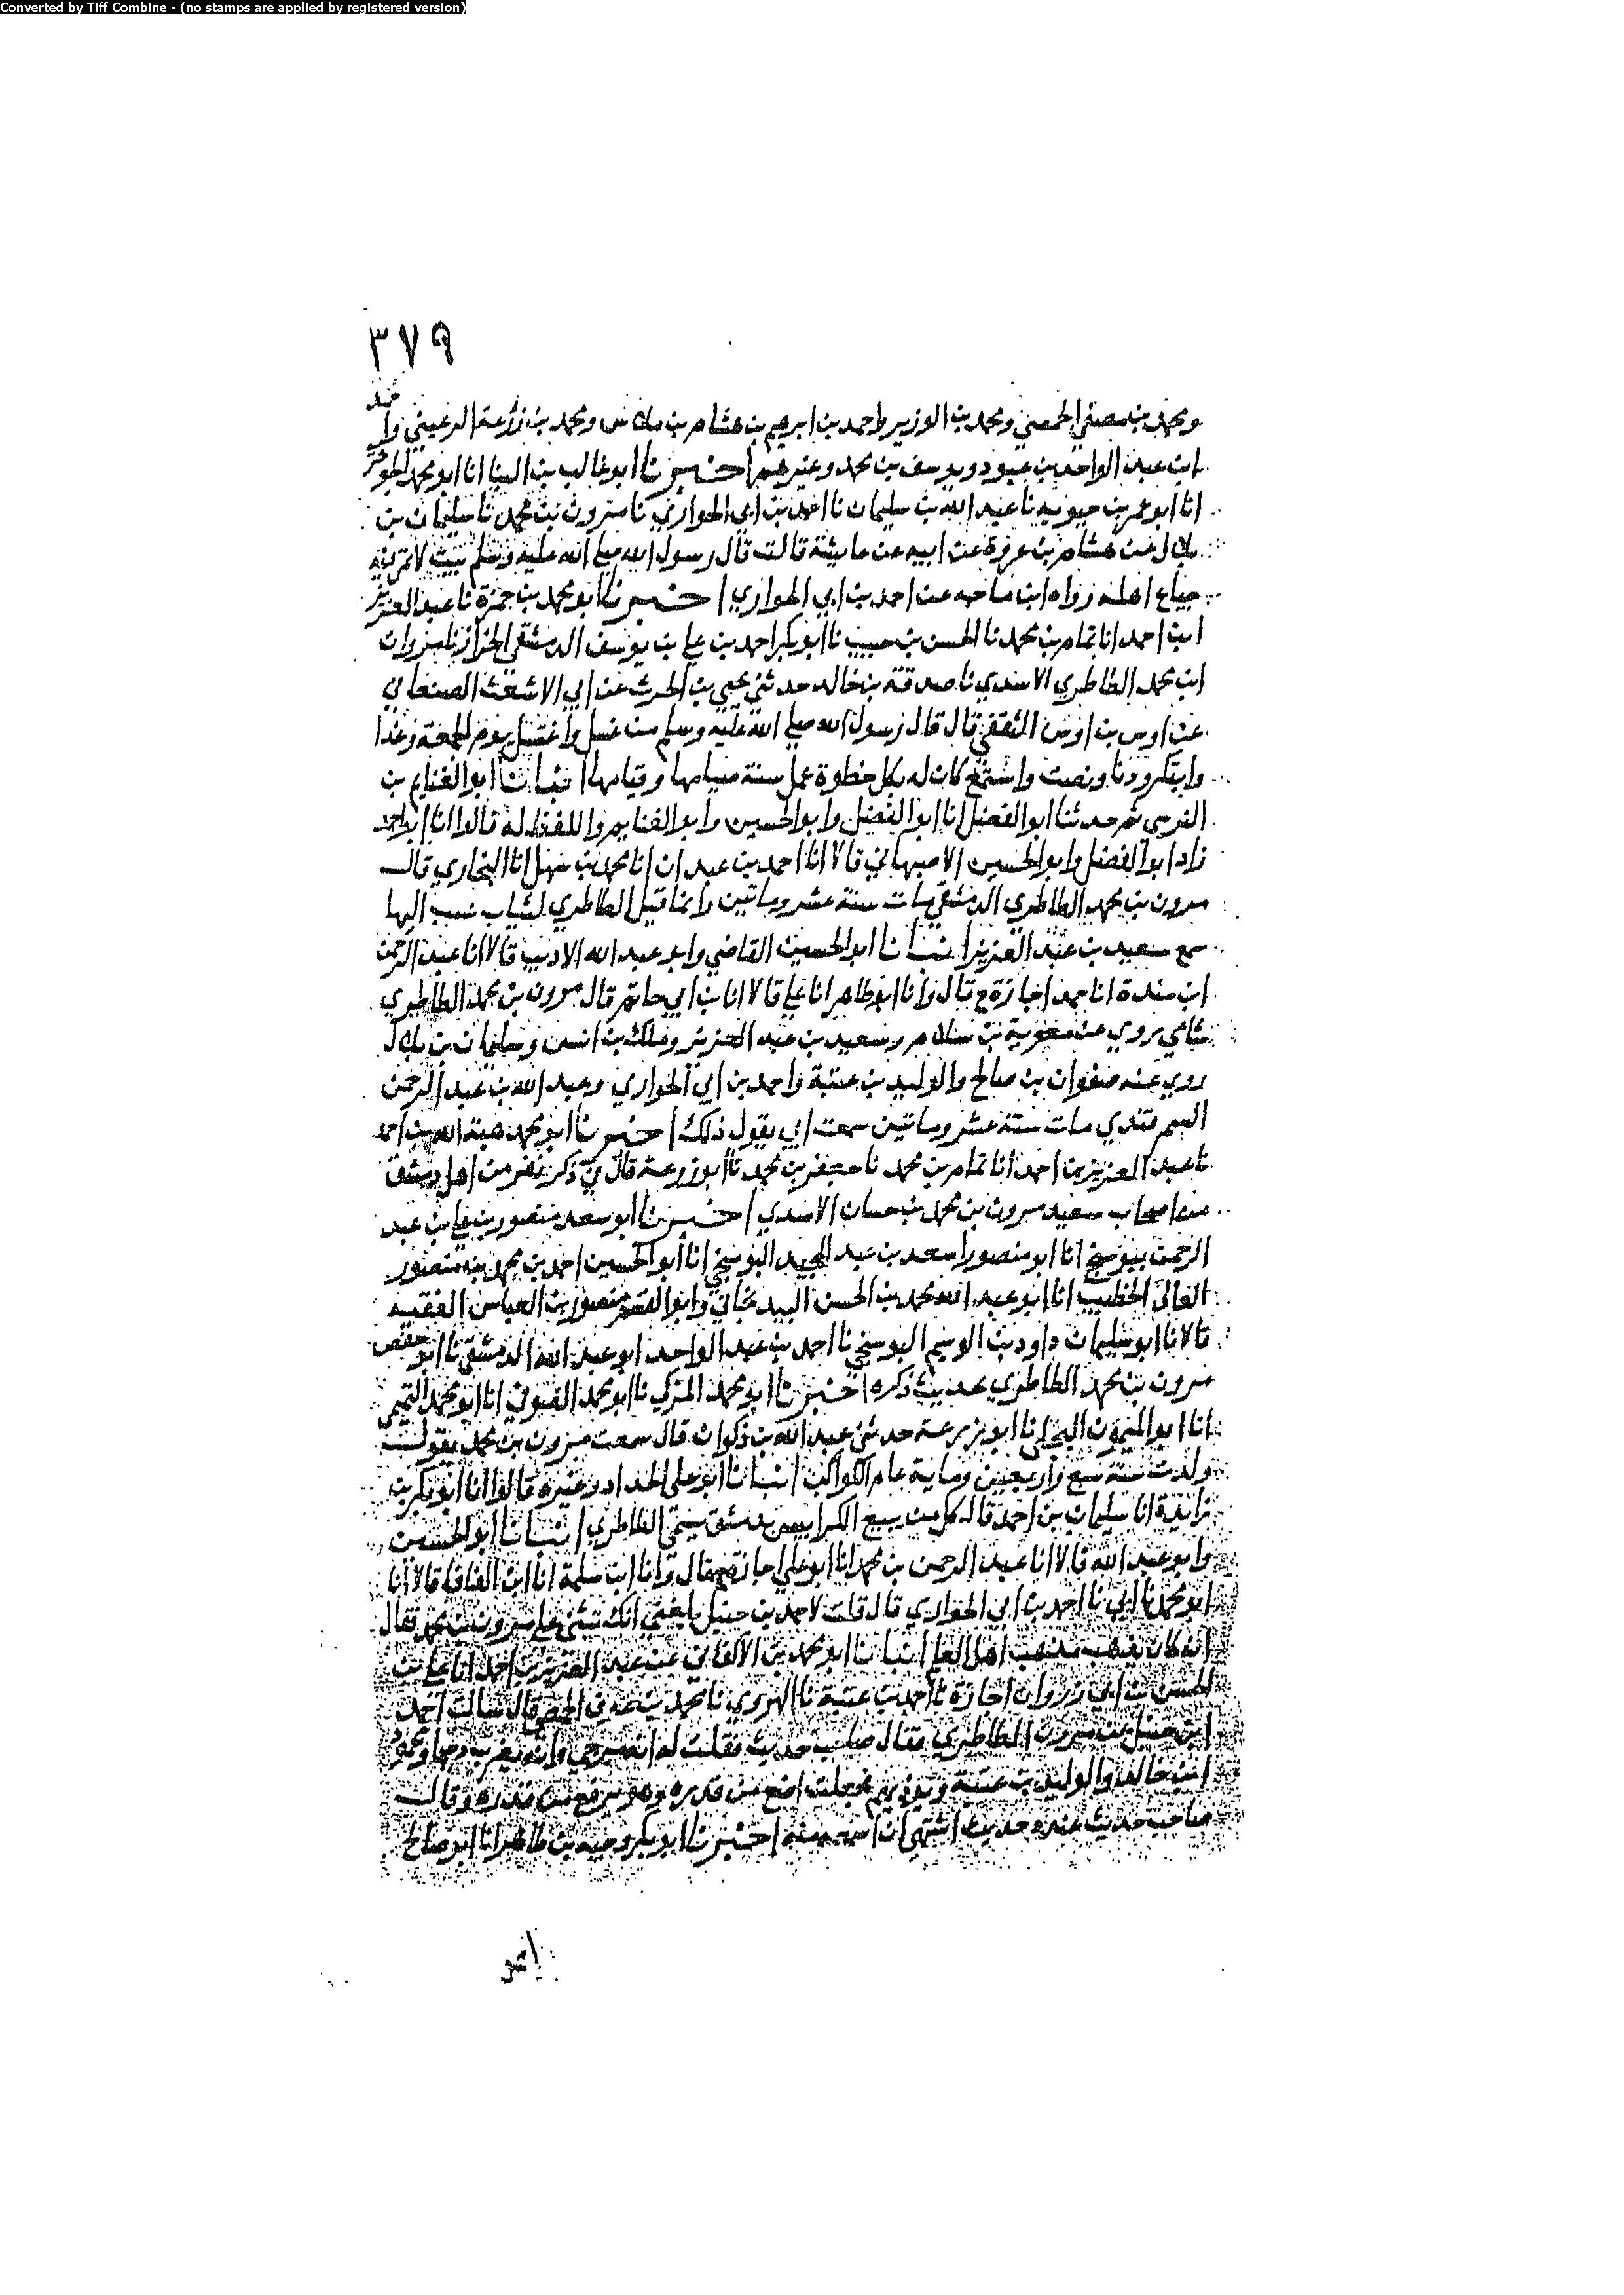 Converted by Tiff Combine - (no stamps are applied by registered version)
٣٧٩
ومحمد بن مصفي الحمصي ومحمد بن الوزير واحمد بن ابرهيم بن هشام بن ملاس ومحمد بن زرعة الرعيني واحمد
ابن عبد الواحد بن عبود ويوسف بن محمد وغيرهم اخبرنا ابو غالب بن البنا انا ابو محمد الجوهري
انا ابو عمر بن حيويه نا عبد الله بن سليمان نا احمد بن ابي الحواري نا مرون بن محمد نا سليمان بن
بلال عن هشام بن عروة عن ابيه عن عايشة قالت قال رسول الله صلي الله عليه وسلم بيت لا تمر فيه
جياع اهله رواه ابن ماجه عن احمد بن ابي الحواري اخبرنا ابو محمد بن حمزة نا عبد العزيز
ابن احمد انا تمام بن محمد نا الحسن بن حبيب نا ابو بكر احمد بن علي بن يوسف الدمشقي الخراز نا مروان
ابن محمد الطاطري الاسدي نا صدقة بن خالد حدثني يحيي بن الحرث عن ابي الاشعث الصنعاني
عن اوس بن اوس الثقفي قال قال رسول الله صلي الله عليه وسلم من غسل واغتسل يوم الجمعة وغدا
وابتكر ودنا ونصت واستمع كان له بكل خطوة عمل سنة صيامها وقيامها انبانا ابو الغنايم بن
النرسي ثم حدثنا ابو الفضل انا ابو الفضل وابو الحسين وابو الغنايم واللفظ له قالوا انا ابو احمد
زاد ابو الفضل وابو الحسين الاصبهاني قالا انا احمد بن عبدان انا محمد بن سهل انا البخاري قال
مرون بن محمد الطاطري الدمشقي مات سنة عشر وماتين وانما قيل الطاطري لثياب نسب اليها
سمع سعيد بن عبد العزيز انبانا ابو الحسين القاضي وابو عبد الله الاديب قالا انا عبد الرحمن
ابن مندة انا حمد اجازة ح قال وانا ابو طاهر انا علي قالا انا بن ابي حاتم قال مرون بن محمد الطاطري
شامي روي عن معوية بن سلام وسعيد بن عبد العزيز وملك بن انس وسليمان بن بلال
روي عنه صفوان بن صالح والوليد بن عتبة واحمد بن ابي الحواري وعبد الله بن عبد الرحمن
السمرقندي مات سنة عشر وماتين سمعت ابي يقول ذلك اخبرنا ابو محمد هبة الله بن احمد
نا عبد العزيز بن احمد انا تمام بن محمد نا جعفر بن محمد نا ابو زرعة قال في ذكر نفر من اهل دمشق
من اصحاب سعيد مرون بن محمد بن حسان الاسدي اخبرنا ابو سعد منصور بن علي بن عبد
الرحمن ببوسنج انا ابو منصور اسعد بن عبد المجيد البوسنجي انا ابو الحسين احمد بن محمد بن منصور
العالي الخطيب انا ابو عبد الله محمد بن الحسن وابو منصور بن العباس الفقيه
قالا نا ابو سليمان داود بن الوسيم البوسنجي نا احمد بن عبد الواحد ابو عبد الله الدمشقي نا ابو حفص
مرون بن محمد الطاطري بحديث ذكره اخبرنا ابو محمد المزكي نا ابو محمد الصوفي انا ابو محمد التميمي
انا ابو الميمون البجلي نا ابو زرعة حدثني عبد الله بن ذكوان قال سمعت مرون بن محمد يقول
ولدت سنة سبع واربعين وماية عام الكواكب انبانا ابو علي الحداد وغيره قالوا انا ابو بكر بن
زايدة انا سليمان بن احمد قال كل من يبيع الكرابيس بدمشق يسمي الطاطري انبانا ابو الحسين
وابو عبد الله قالا انا عبد الرحمن بن محمد انا ابو علي اجازة ح قال وانا ابن سلمة انا ابن الفافا قالا انا
ابو محمد نا ابي نا احمد بن ابي الحواري قال قلت لاحمد بن حنبل بلغني انك تثني علي مرون بن محمد فقال
انه كان يذهب مذهب اهل العلم انبانا ابو محمد بن الاكفاني عن عبد العزيز بن احمد انا علي بن
الحسن بن ابي زروان اجازة نا احمد بن عتبة نا الهروي نا محمد بن عوف الحمصي قال سالت احمد
ابن حنبل عن مرون الطاطري فقال صاحب حديث فقلت له انه مرجي وانه ومحمود
ابن خالد والوليد بن عتبة فجعلت اضع من قدره وهو يرفع من قدره وقال
صاحب حديث عنده حديث اشتهي ان اسمعه منه اخبرنا ابو بكر وجيه بن طاهر انا ابو صالح
احمد